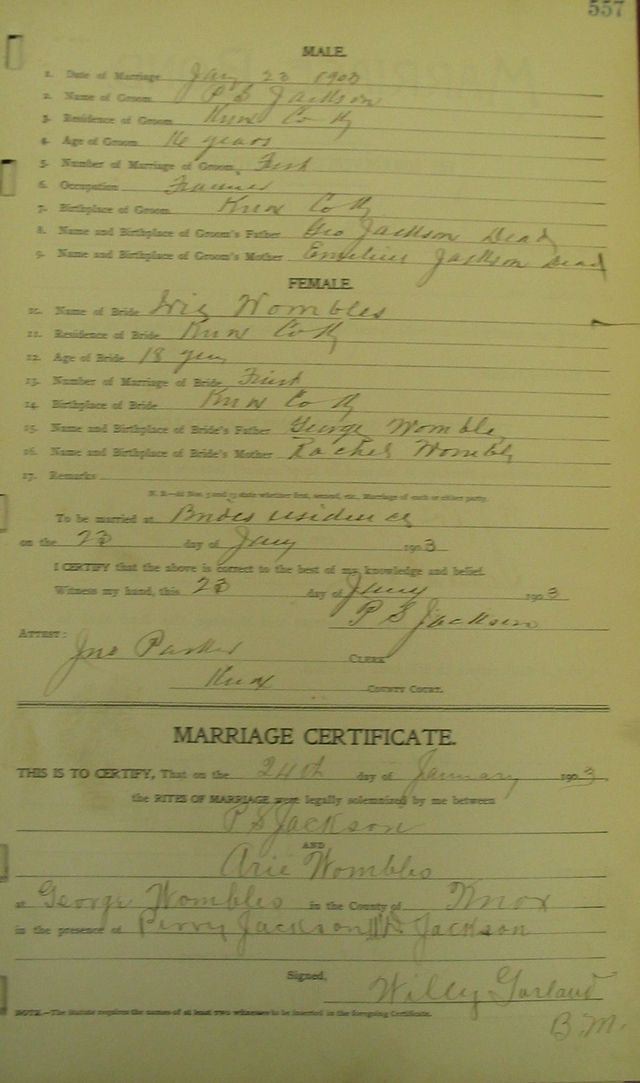 557
MALE.
1. Date of Marriage Jany 23 1903
2. Name of Groom P S Jackson
3. Residence of Groom Knox Co Ky
4. Age of Groom 16 years
5. Number of Marriage of Groom, First
6. Occupation Farmer
7. Birthplace of Groom Knox Co Ky
8. Name and Birthplace of Groom's Father Geo Jackson Dead
9. Name and Birthplace of Groom's Mother Jackson Dead
FEMALE.
10. Name of Bride Wombles
11. Residence of Bride Knox Co Ky
12. Age of Bride 18 years
13. Number of Marriage of Bride First
14. Birthplace of Bride Knox Co Ky
15. Name and Birthplace of Bride's Father George Wombles
16. Name and Birthplace of Bride's Mother Rachel Wombles
17. Remarks
N. B.—At Nos. 5 and 13 state whether first, second, etc., Marriage of each or either party.
To be married at Brides residence
on the 23 day of Jany 1903
I CERTIFY that the above is correct to the best of my knowledge and belief.
Witness my hand, this 23 day of Jany 1903
P S Jackson
ATTEST:
Jno Parker CLERK
Knox COUNTY COURT.
MARRIAGE CERTIFICATE.
THIS IS TO CERTIFY, That on the 24th day of January 1903,
the RITES OF MARRIAGE were legally solemnized by me between
P S Jackson
AND
Arie Wombles
at George Wombles in the County of Knox
in the presence of Perry Jackson Jackson
Signed, Willy Garland
B.M.
NOTE.—The Statute requires the names of at least two witnesses to be inserted in the foregoing Certificate.